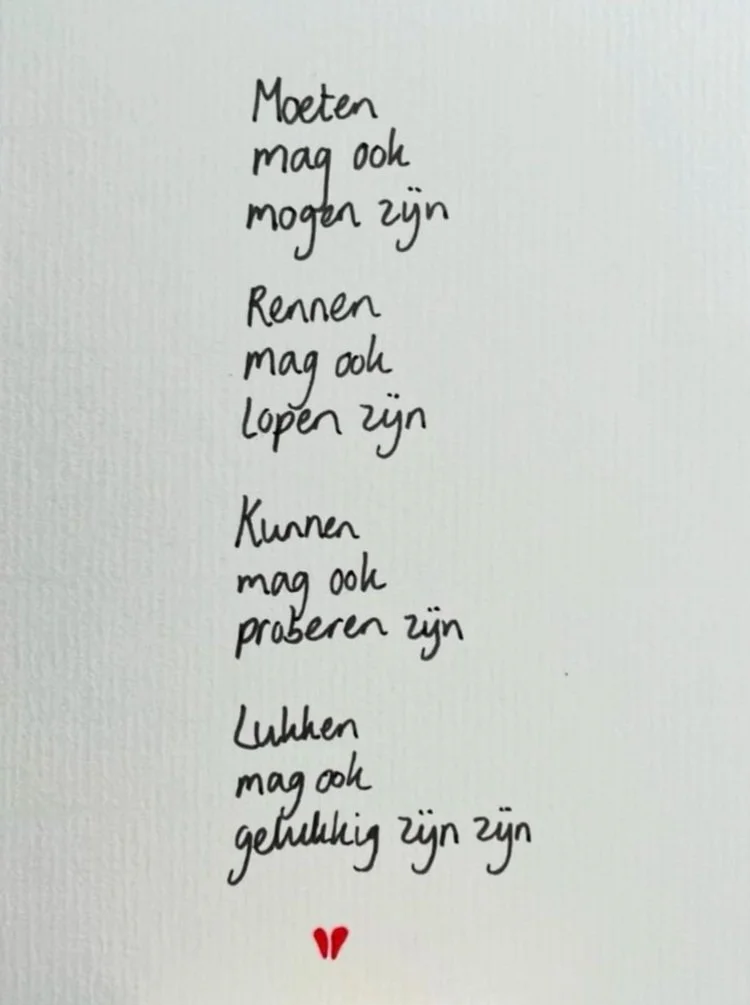 Moeten
mag ook
mogen zijn
Rennen
mag ook
lopen zijn
Kunnen
mag ook
proberen zijn
Lukken
mag ook
gelukkig zijn zijn